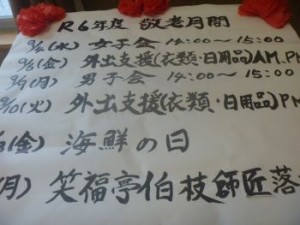 R6年度 敬老月間
9/4(水) 女子会 14:00~15:00
9/6(金) 外出支援(衣類・日用品)AM.PM
9/9(月) 男子会 14:00~15:00
/10(火) 外出支援(衣類・日用品)PM
(金) 海鮮の日
月) 笑福亭伯枝師匠落